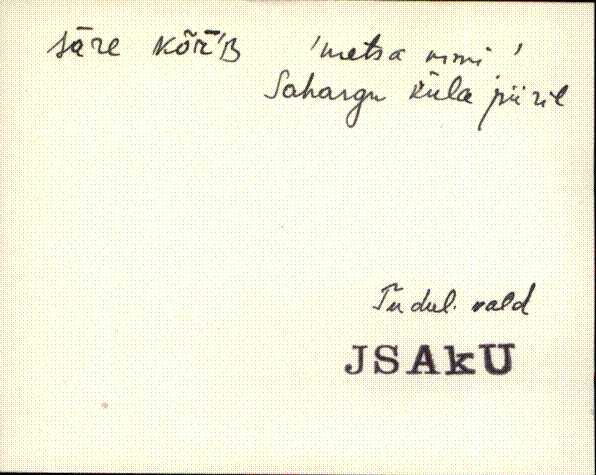 säre kõr̄'B 'metsa nimi'
Sahargu küla piiril
Tudul. vald
JSAkU